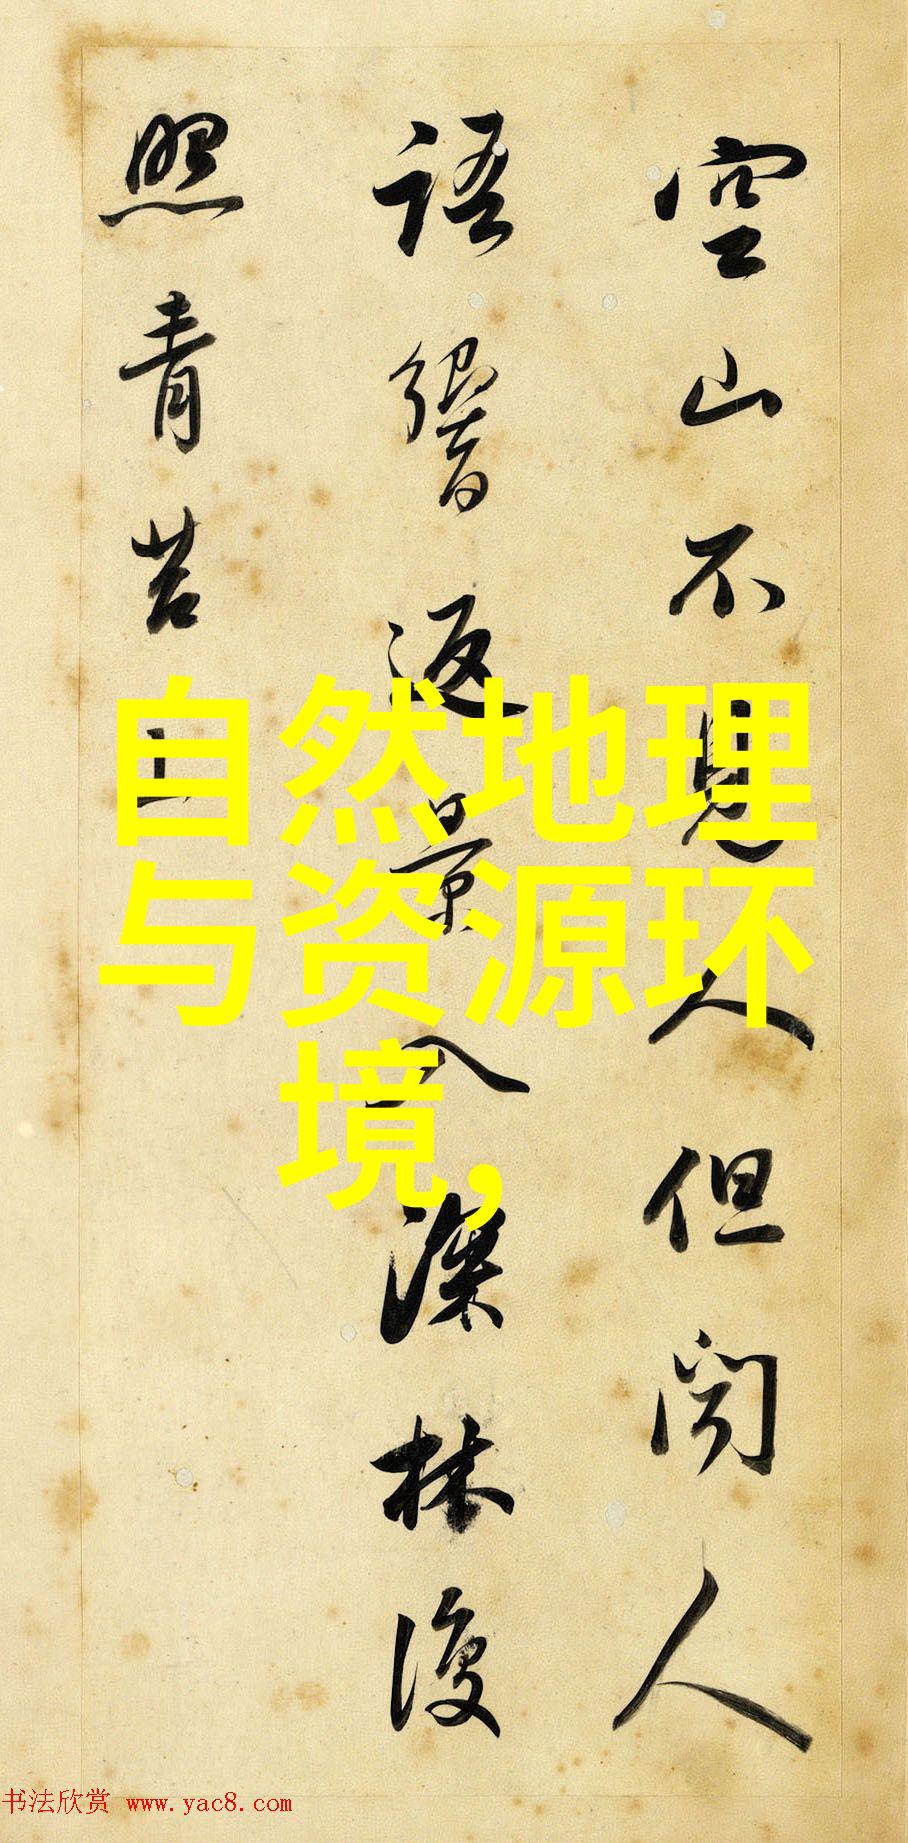 空山不見人但聞人
語響返景入深林復
照青苔上
自然地理
与资源环
境,
书法欣赏 www.yac8.com